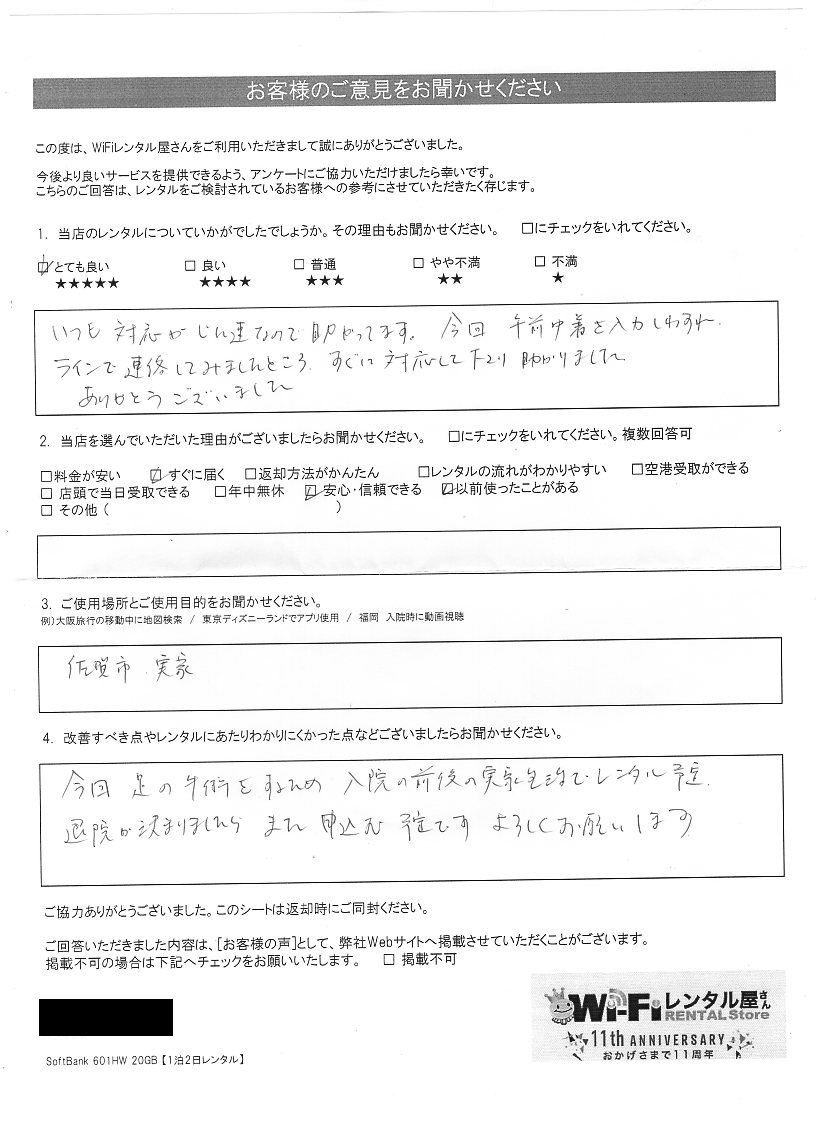 お客様のご意見をお聞かせください
この度は、WiFiレンタル屋さんをご利用いただきまして誠にありがとうございました。
今後より良いサービスを提供できるよう、アンケートにご協力いただけましたら幸いです。
こちらのご回答は、レンタルをご検討されているお客様への参考にさせていただきたく存じます。
1. 当店のレンタルについていかがでしたでしょうか。その理由もお聞かせください。 □にチェックをいれてください。
☑とても良い □ 良い □ 普通 □ やや不満 □ 不満
★★★★★ ★★★★ ★★★ ★★ ★
いつも 対応が なので 助かってます。 今回 午前中着を入力しわすれ
ラインで連絡してみましたところ、すぐに対応して下さり 助かりました
ありがとうございました
2. 当店を選んでいただいた理由がございましたらお聞かせください。 □にチェックをいれてください。複数回答可
□料金が安い ☑すぐに届く □返却方法がかんたん □レンタルの流れがわかりやすい □空港受取ができる
□ 店頭で当日受取できる □年中無休 ☑安心・信頼できる ☑以前使ったことがある
□ その他 ( )
3. ご使用場所とご使用目的をお聞かせください。
例)大阪旅行の移動中に地図検索 / 東京ディズニーランドでアプリ使用 / 福岡 入院時に動画視聴
佐賀市 実家
4. 改善すべき点やレンタルにあたりわかりにくかった点などございましたらお聞かせください。
今回 足の手術をするため 入院の前後の実家生活でレンタル予定.
退院が決まりましたら また 申込む 予定です よろしくお願いします
ご協力ありがとうございました。このシートは返却時にご同封ください。
ご回答いただきました内容は、[お客様の声]として、弊社Webサイトへ掲載させていただくことがございます。
掲載不可の場合は下記へチェックをお願いいたします。 □ 掲載不可
Wi-Fiレンタル屋さん
RENTAL Store
11th ANNIVERSARY
おかげさまで11周年
SoftBank 601HW 20GB【1泊2日レンタル】